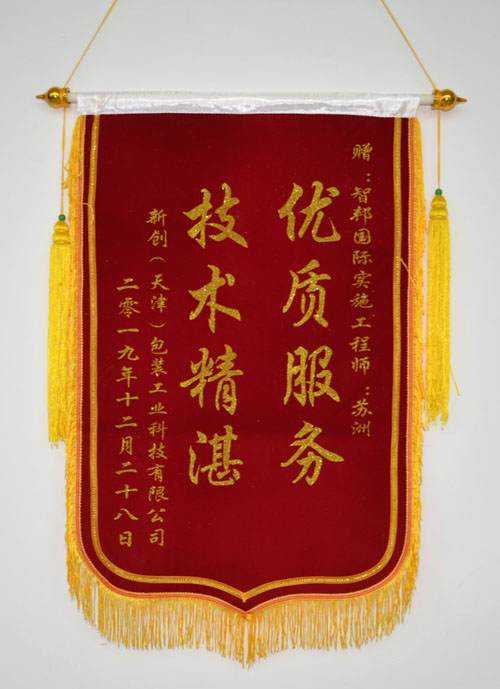 赠：智邦国际实施工程师：苏洲
优质服务
技术精湛
新创（天津）包装工业科技有限公司
二零一九年十二月二十八日